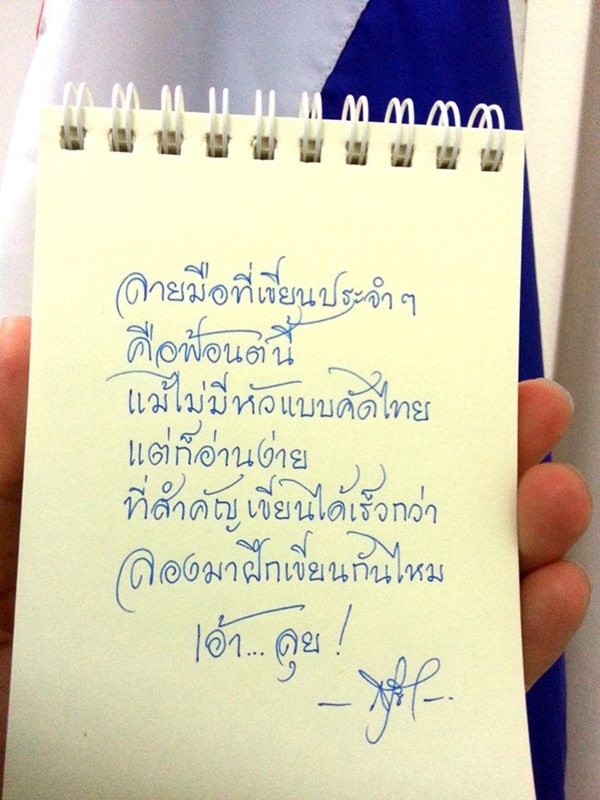 ลายมือที่เขียนประจำๆ
คือฟ้อนต์นี้
แม้ไม่มีหัวแบบคัดไทย
แต่ก็อ่านง่าย
ที่สำคัญเขียนได้เร็วกว่า
ลองมาฝึกเขียนกันไหม
เอ้า... ลุย !